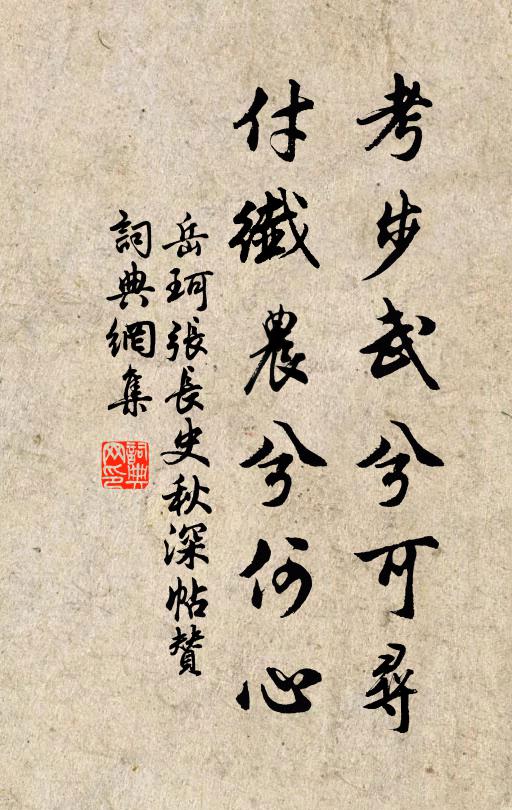 考步武兮可尋
付纖農兮何心
岳珂張長史秋深帖贊
詞典網集
詞典網印